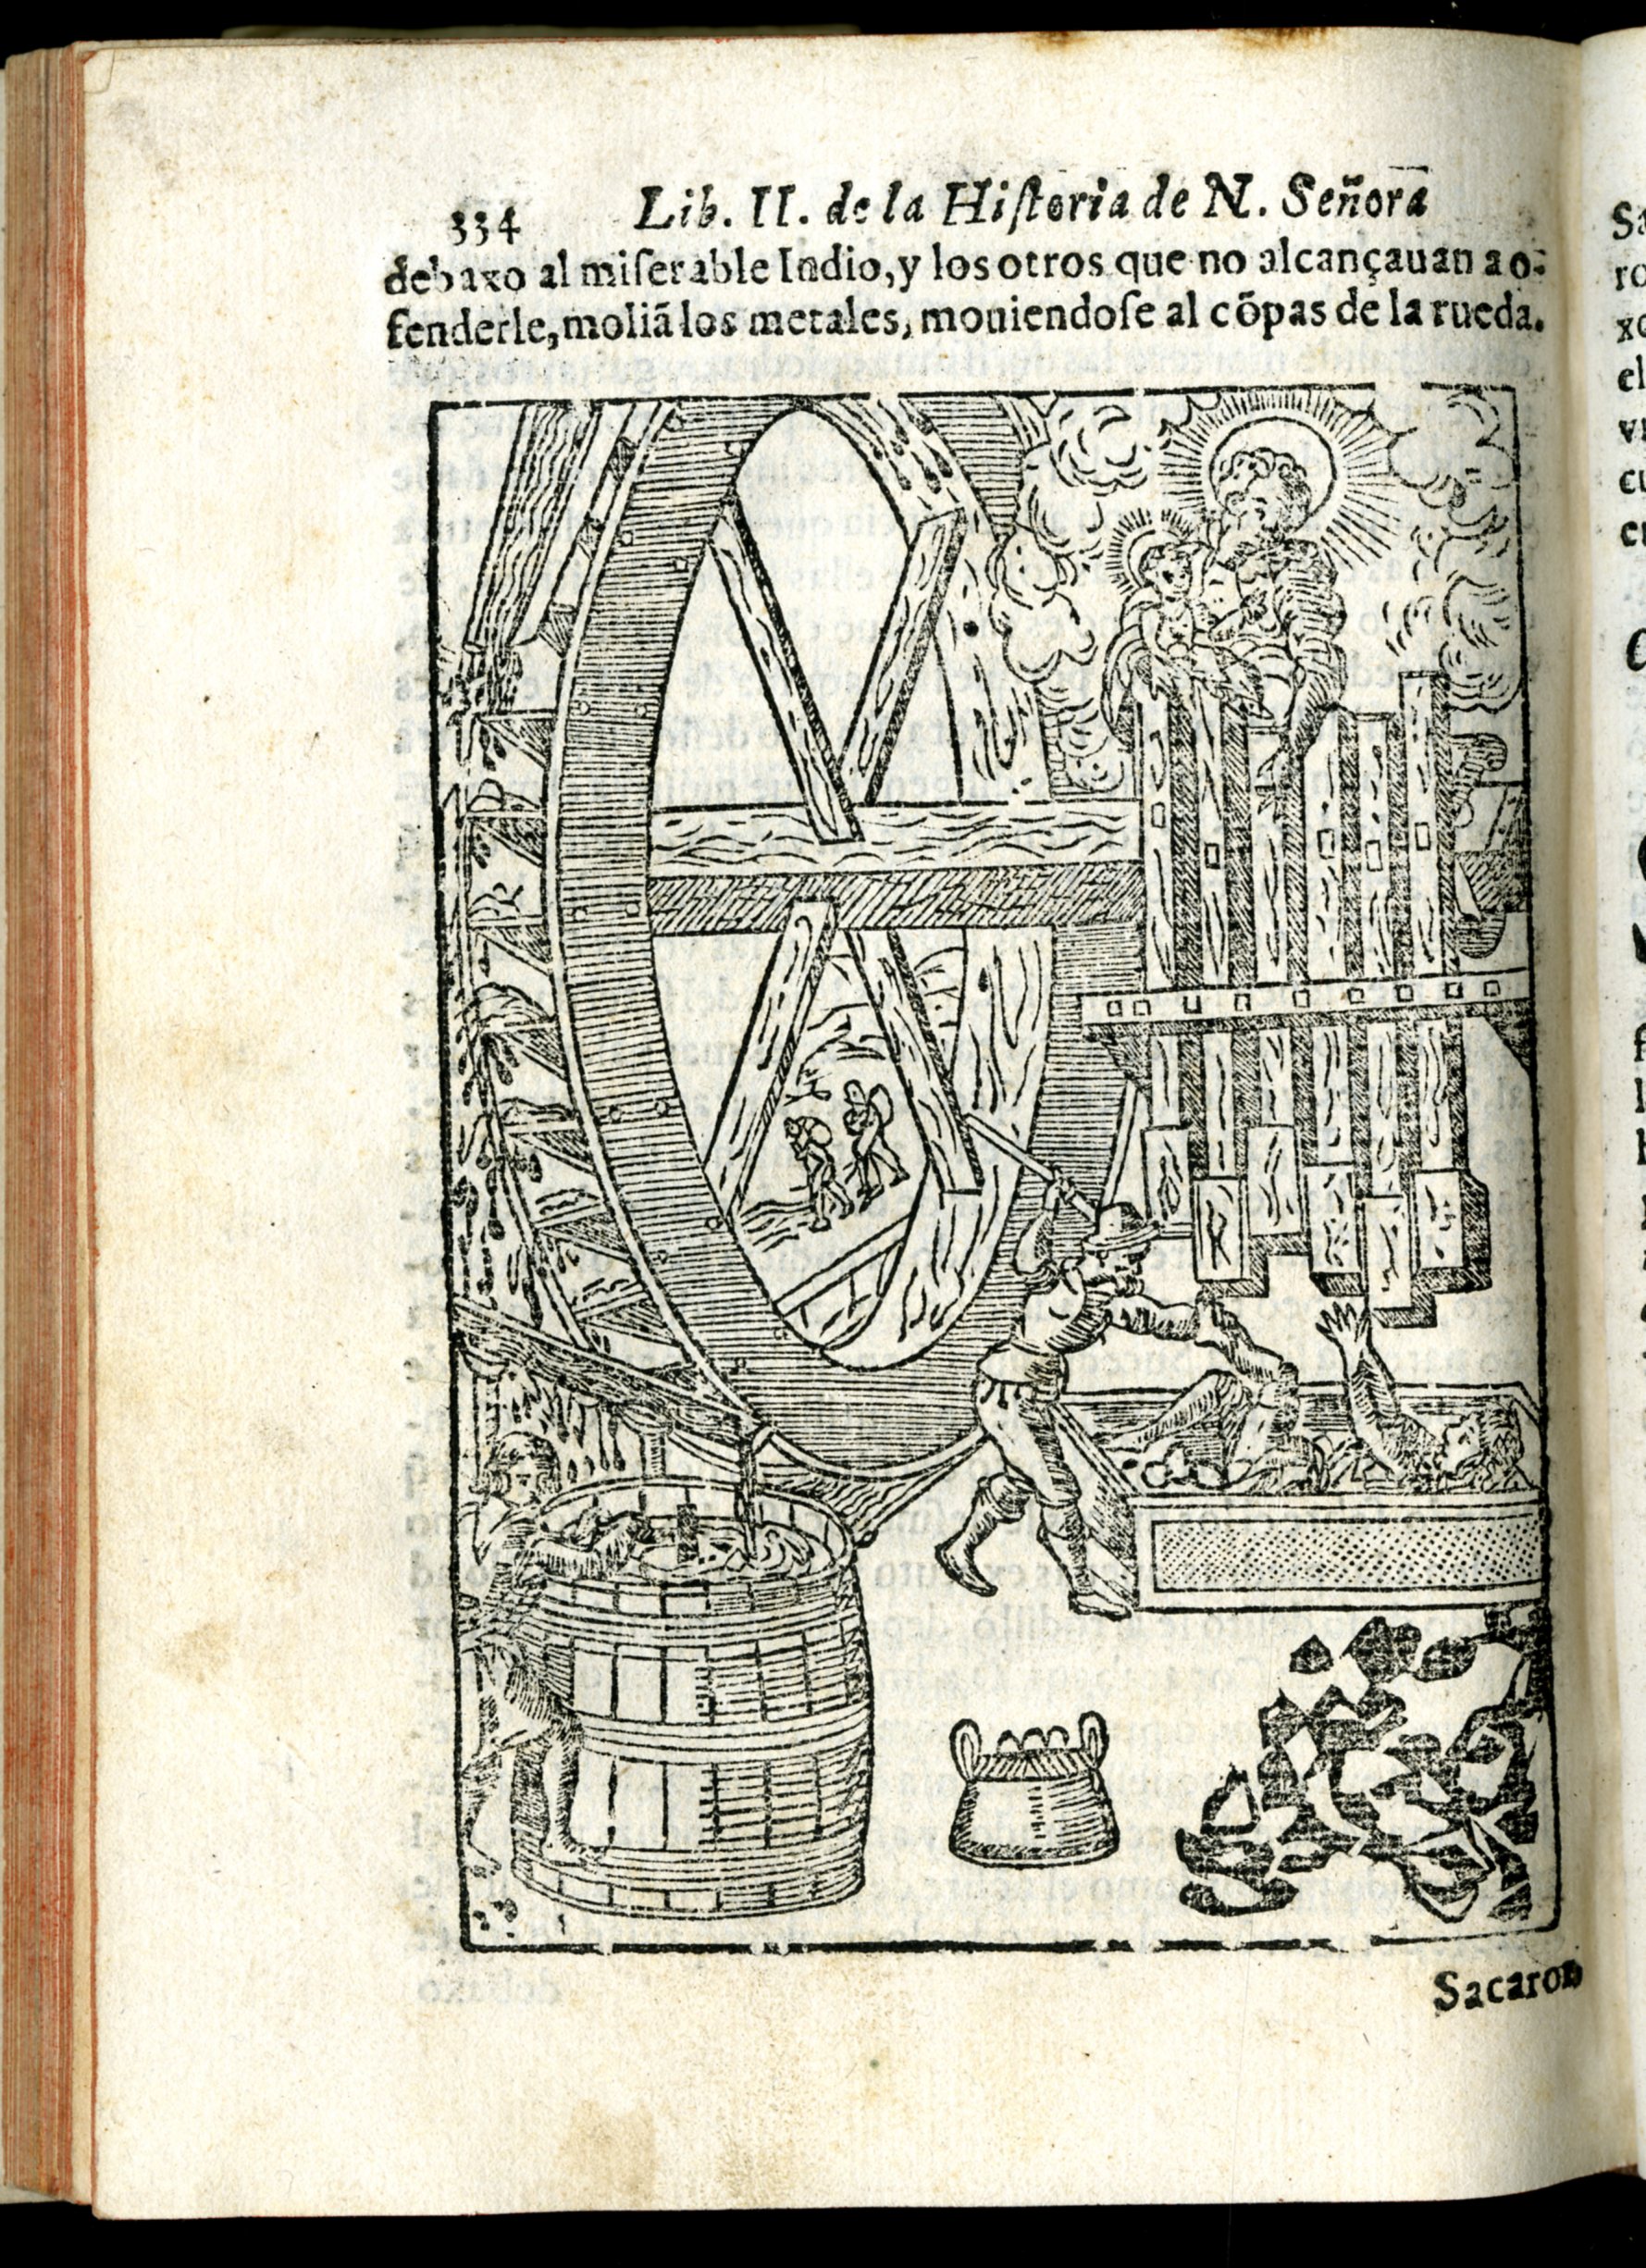 334 Lib. II. de la Hiſtoria de N. Señora
debaxo al miſerable Indio, y los otros que no alcançauan a o-
fenderle, moliā los metales, mouiendoſe al cōpas de la rueda.
Sacaron